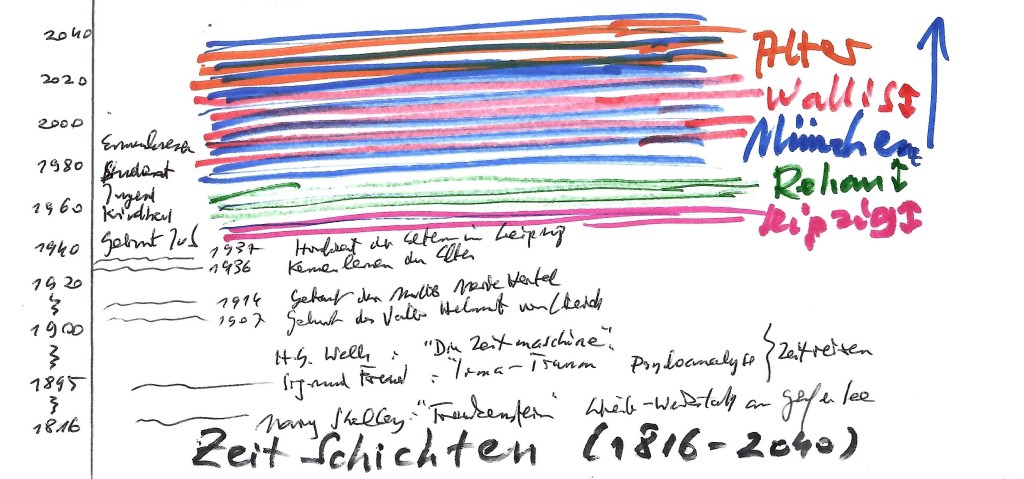 2040
Alter
2020
Wallis
2000
München
1980
Student
Rehau
Jugend
1960
Kindheit
Leipzig
1940
Geburt JvS
1937 Hochzeit der Eltern in Leipzig
1936 Kennenlernen der Eltern
1920
1914 Geburt der Mutter
1907 Geburt des Vaters Helmut
1900
H.G. Wells : "Die Zeitmaschine".
Zeitreisen
1895
Sigmund Freud : "Irma-Traum Psychoanalyse
1816
Mary Shelley: "Frankenstein" Schreib-Werkstatt am Genfer See
Zeit Schichten (1816-2040)